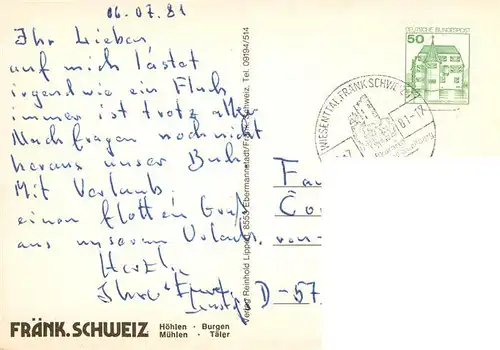 06.07.81
Ihr Lieben,
auf mich lastet
irgendwie ein Fluch,
immer ist trotz aller
Nachfragen noch nicht
heraus unser Buch.
Mit Verlaub
einen flotten Gruß
aus unserem Urlaub.
Herzl.
Ihre
FRÄNK.SCHWEIZ
Höhlen · Burgen
Mühlen · Täler
Verlag Reinhold Lippert, 8553 Ebermannstadt/Fränk. Schweiz, Tel. 09194/514
DEUTSCHE BUNDESPOST
50
WIESENTTAL, FRÄNK. SCHWEIZ
Fam
D-57